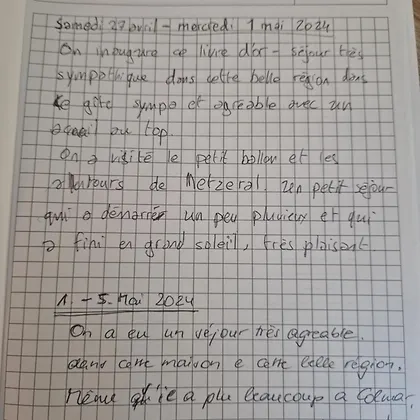 Samedi 27 avril - mercredi 1 mai 2024
On inaugure ce livre d'or - séjour très
sympathique dans cette belle région dans
le gîte sympa et agréable avec un
accueil au top.
On a visité le petit ballon et les
alentours de Metzeral. Un petit séjour
qui a démarrer un peu pluvieux et qui
a fini en grand soleil, très plaisant
1. - 5. Mai 2024
On a eu un séjour très agreable.
dans cette maison e cette belle région.
Même qu'il a plu beaucoup a Colmar